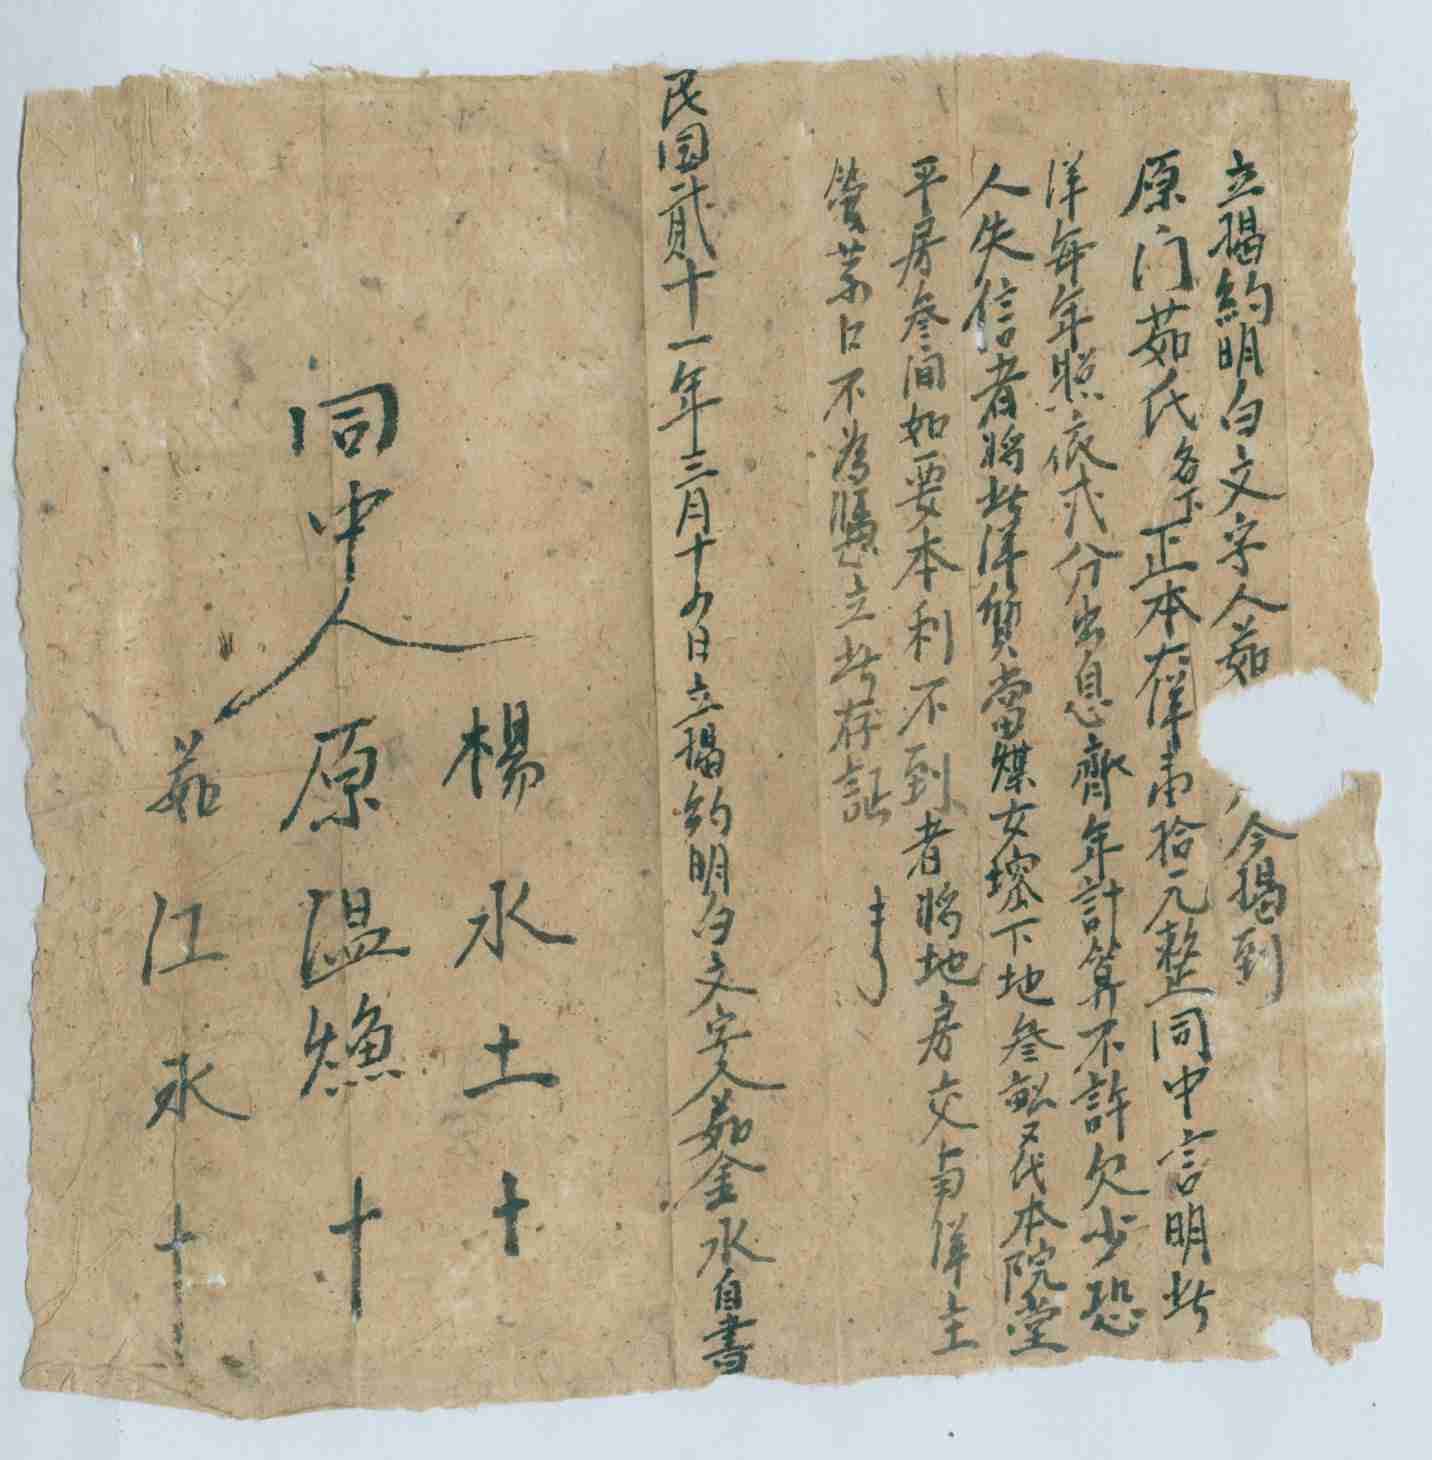 立揭約明白文字人茹 今揭到
原门茹氏名下正本大洋 拾元整同中言明此
洋每年照依弍分出息齊年計算不許欠少恐
人失信者將此洋質當煤女 下地叁畝 本院堂
平房叁间如要本利不到者將地房交与洋主
管業口不為憑立此存証
民国貳十一年三月十 日立揭約明白文字人茹金水自書
同中人
楊水土十
原温 十
茹江水十